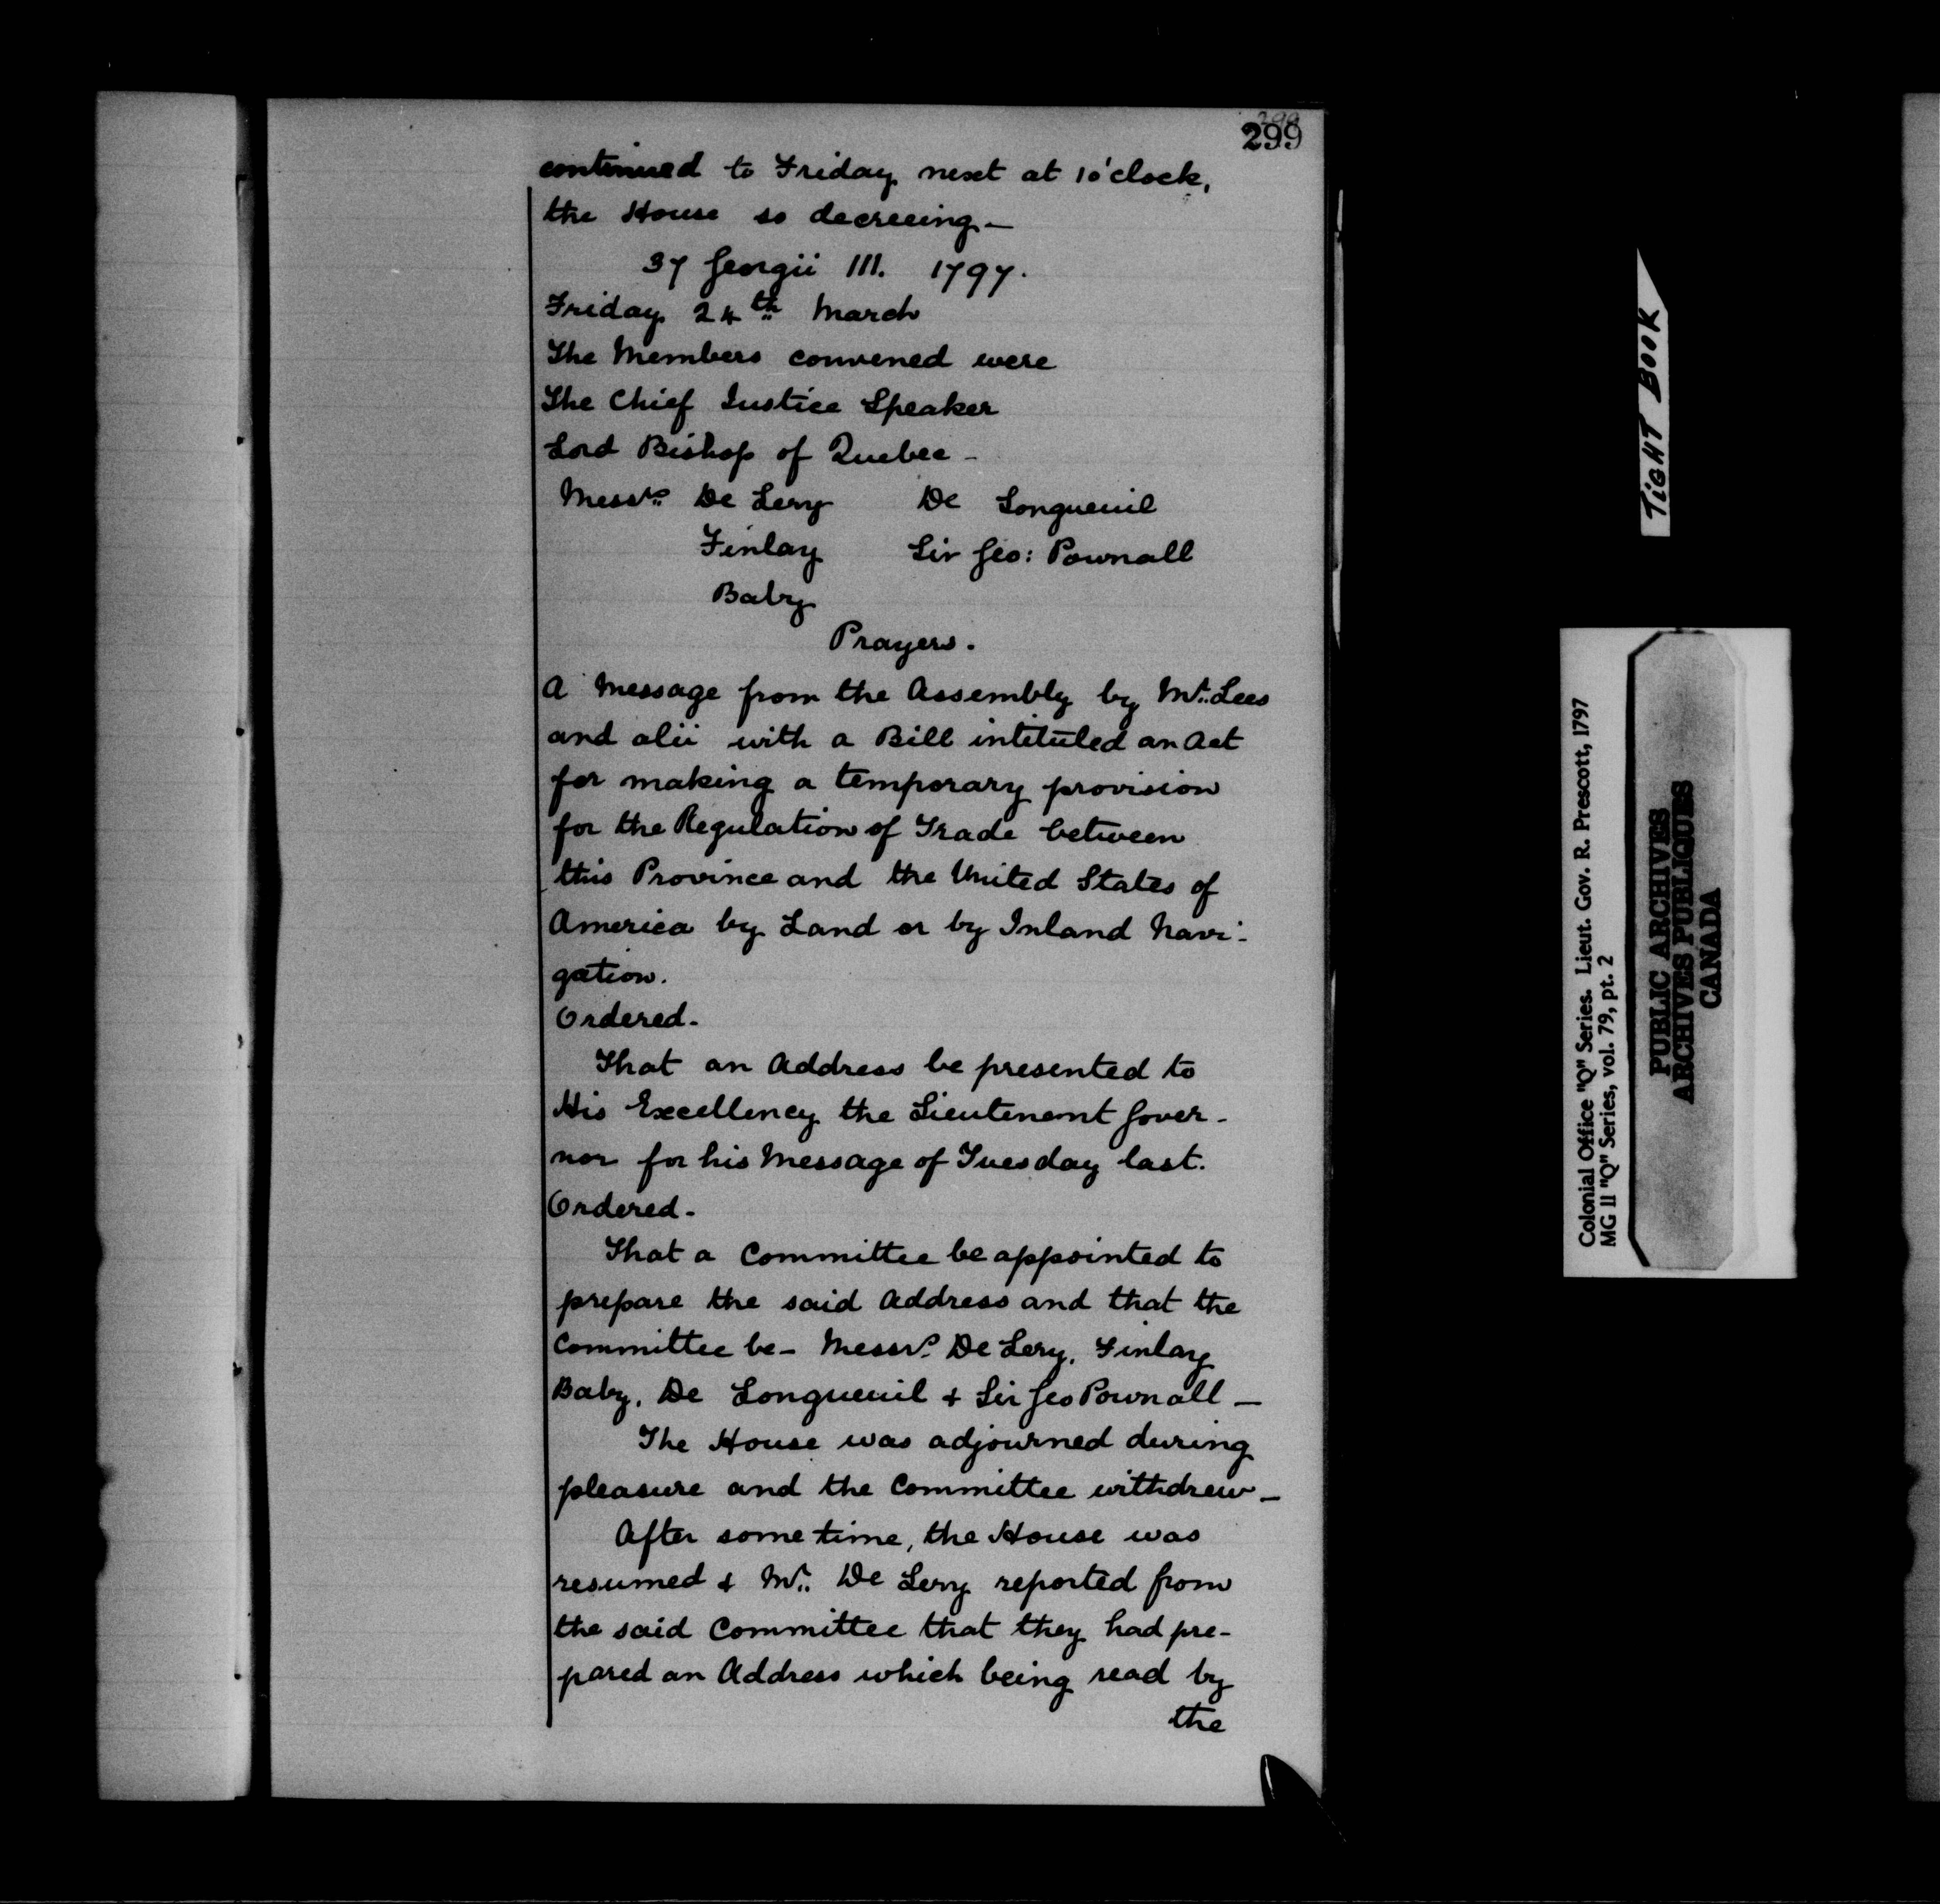 299
299
continued to Friday next at 1 o'clock,
the House so decreeing—
37 Georgii III. 1797.
Friday 24th March
The Members convened were
The Chief Justice Speaker
Lord Bishop of Quebec -
Messrs De Lery De Longueuil
Finlay Sir Geo: Pownall
Baby
Prayers.
A Message from the Assembly by Mr. Lees
and alii with a Bill intituled an Act
for making a temporary provision
for the Regulation of Trade between
this Province and the United States of
America by Land or by Inland Navi-
gation.
Ordered-
That an Address be presented to
His Excellency the Lieutenant Gover-
nor for his Message of Tuesday last.
Ordered-
That a Committee be appointed to
prepare the said Address and that the
Committee be- Messrs. De Lery, Finlay
Baby, De Longueuil & Sir Geo Pownall —
The House was adjourned during
pleasure and the Committee withdrew—
After some time, the House was
resumed & Mr. De Lery reported from
the said Committee that they had pre-
pared an Address which being read by
the
TIGHT BOOK
Colonial Office "Q" Series. Lieut. Gov. R. Prescott, 1797
MG 11 "Q" Series, vol. 79, pt. 2
PUBLIC ARCHIVES
ARCHIVES PUBLIQUES
CANADA